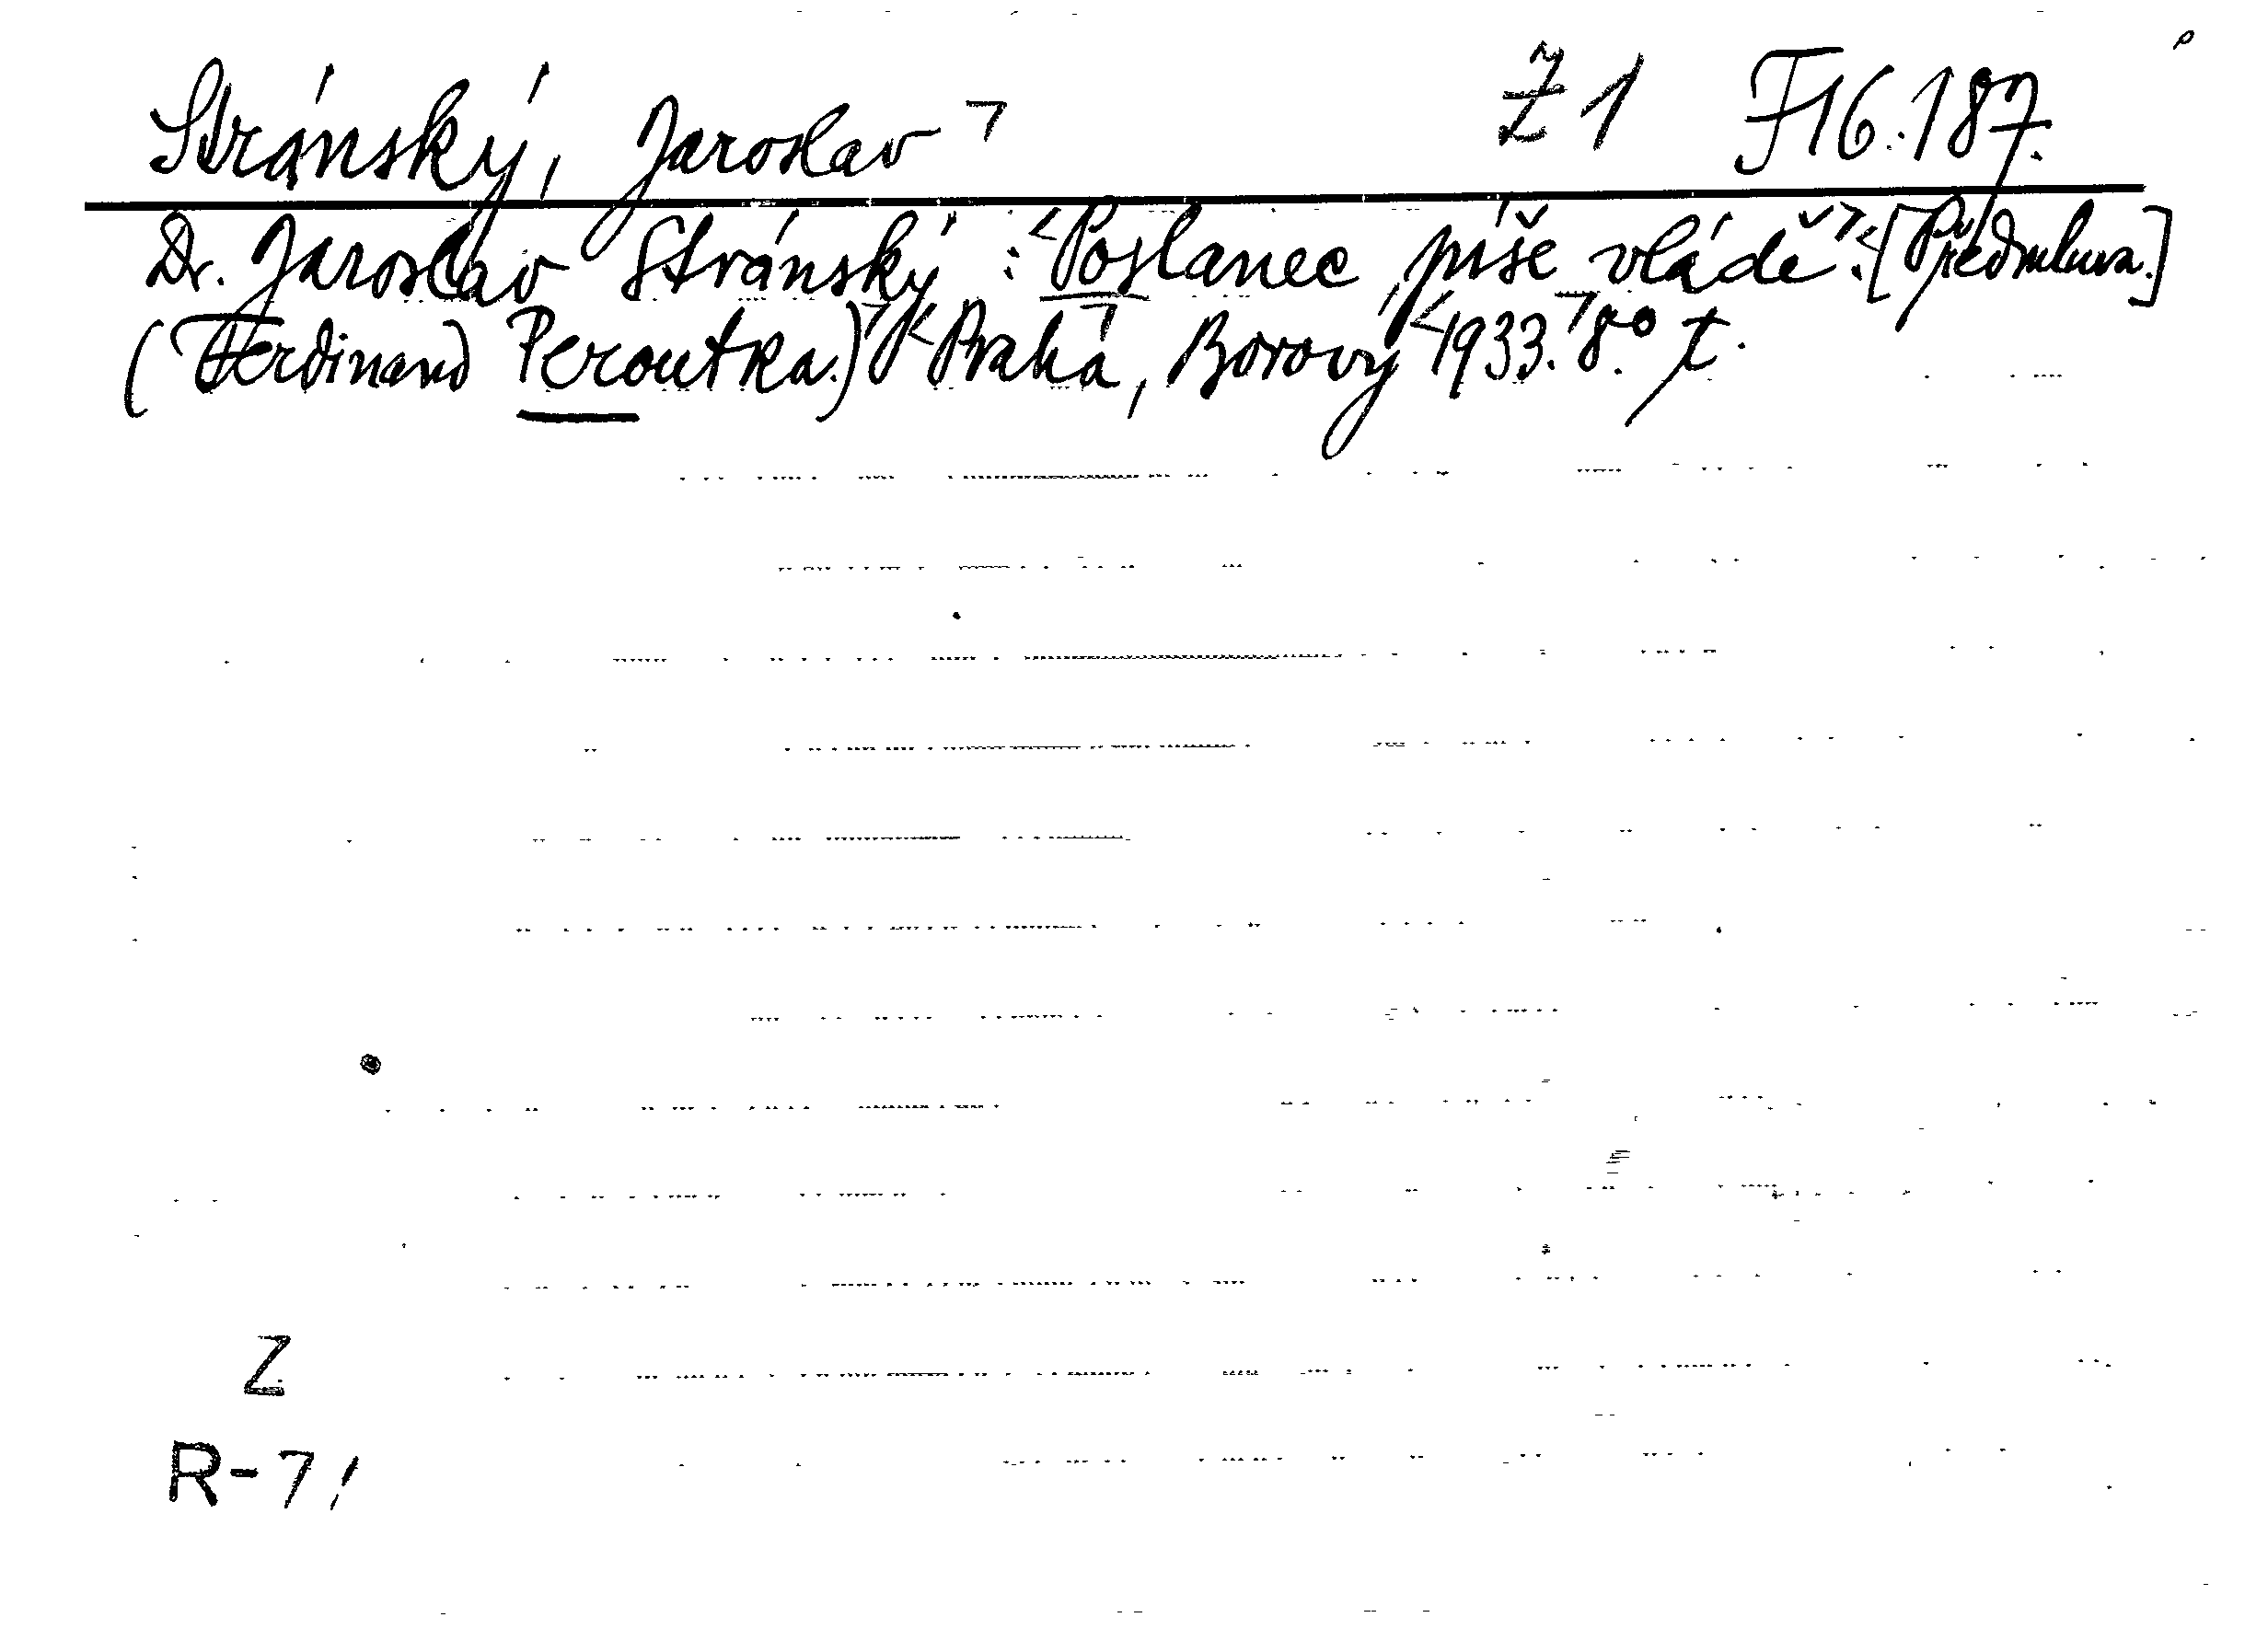 Stránský, Jaroslav Ž 1 F16.187.
Dr. Jaroslav Stránský : Poslanec píše vládě. [Předmluva.]
(Ferdinand Peroutka.) Praha, Borový 1933. 8.° t.
Z
R-71